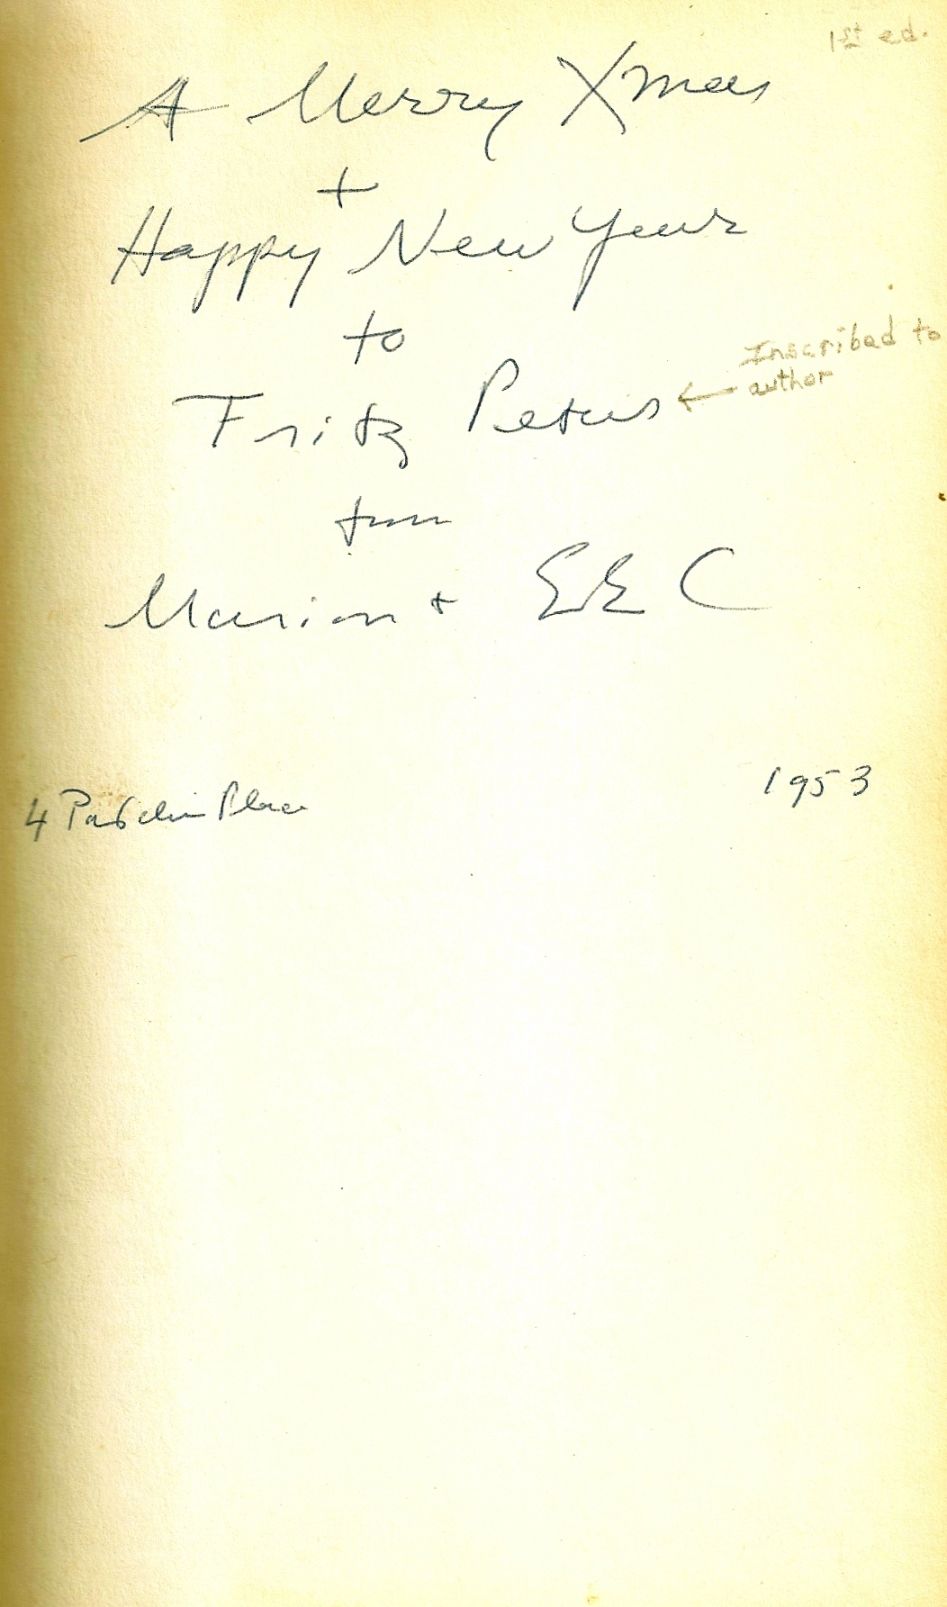 1st ed.
A Merry Xmas
+
Happy New Year
to
Fritz Peters
Inscribed to
author
from
Marion + EEC
1953
4 Patchin Place